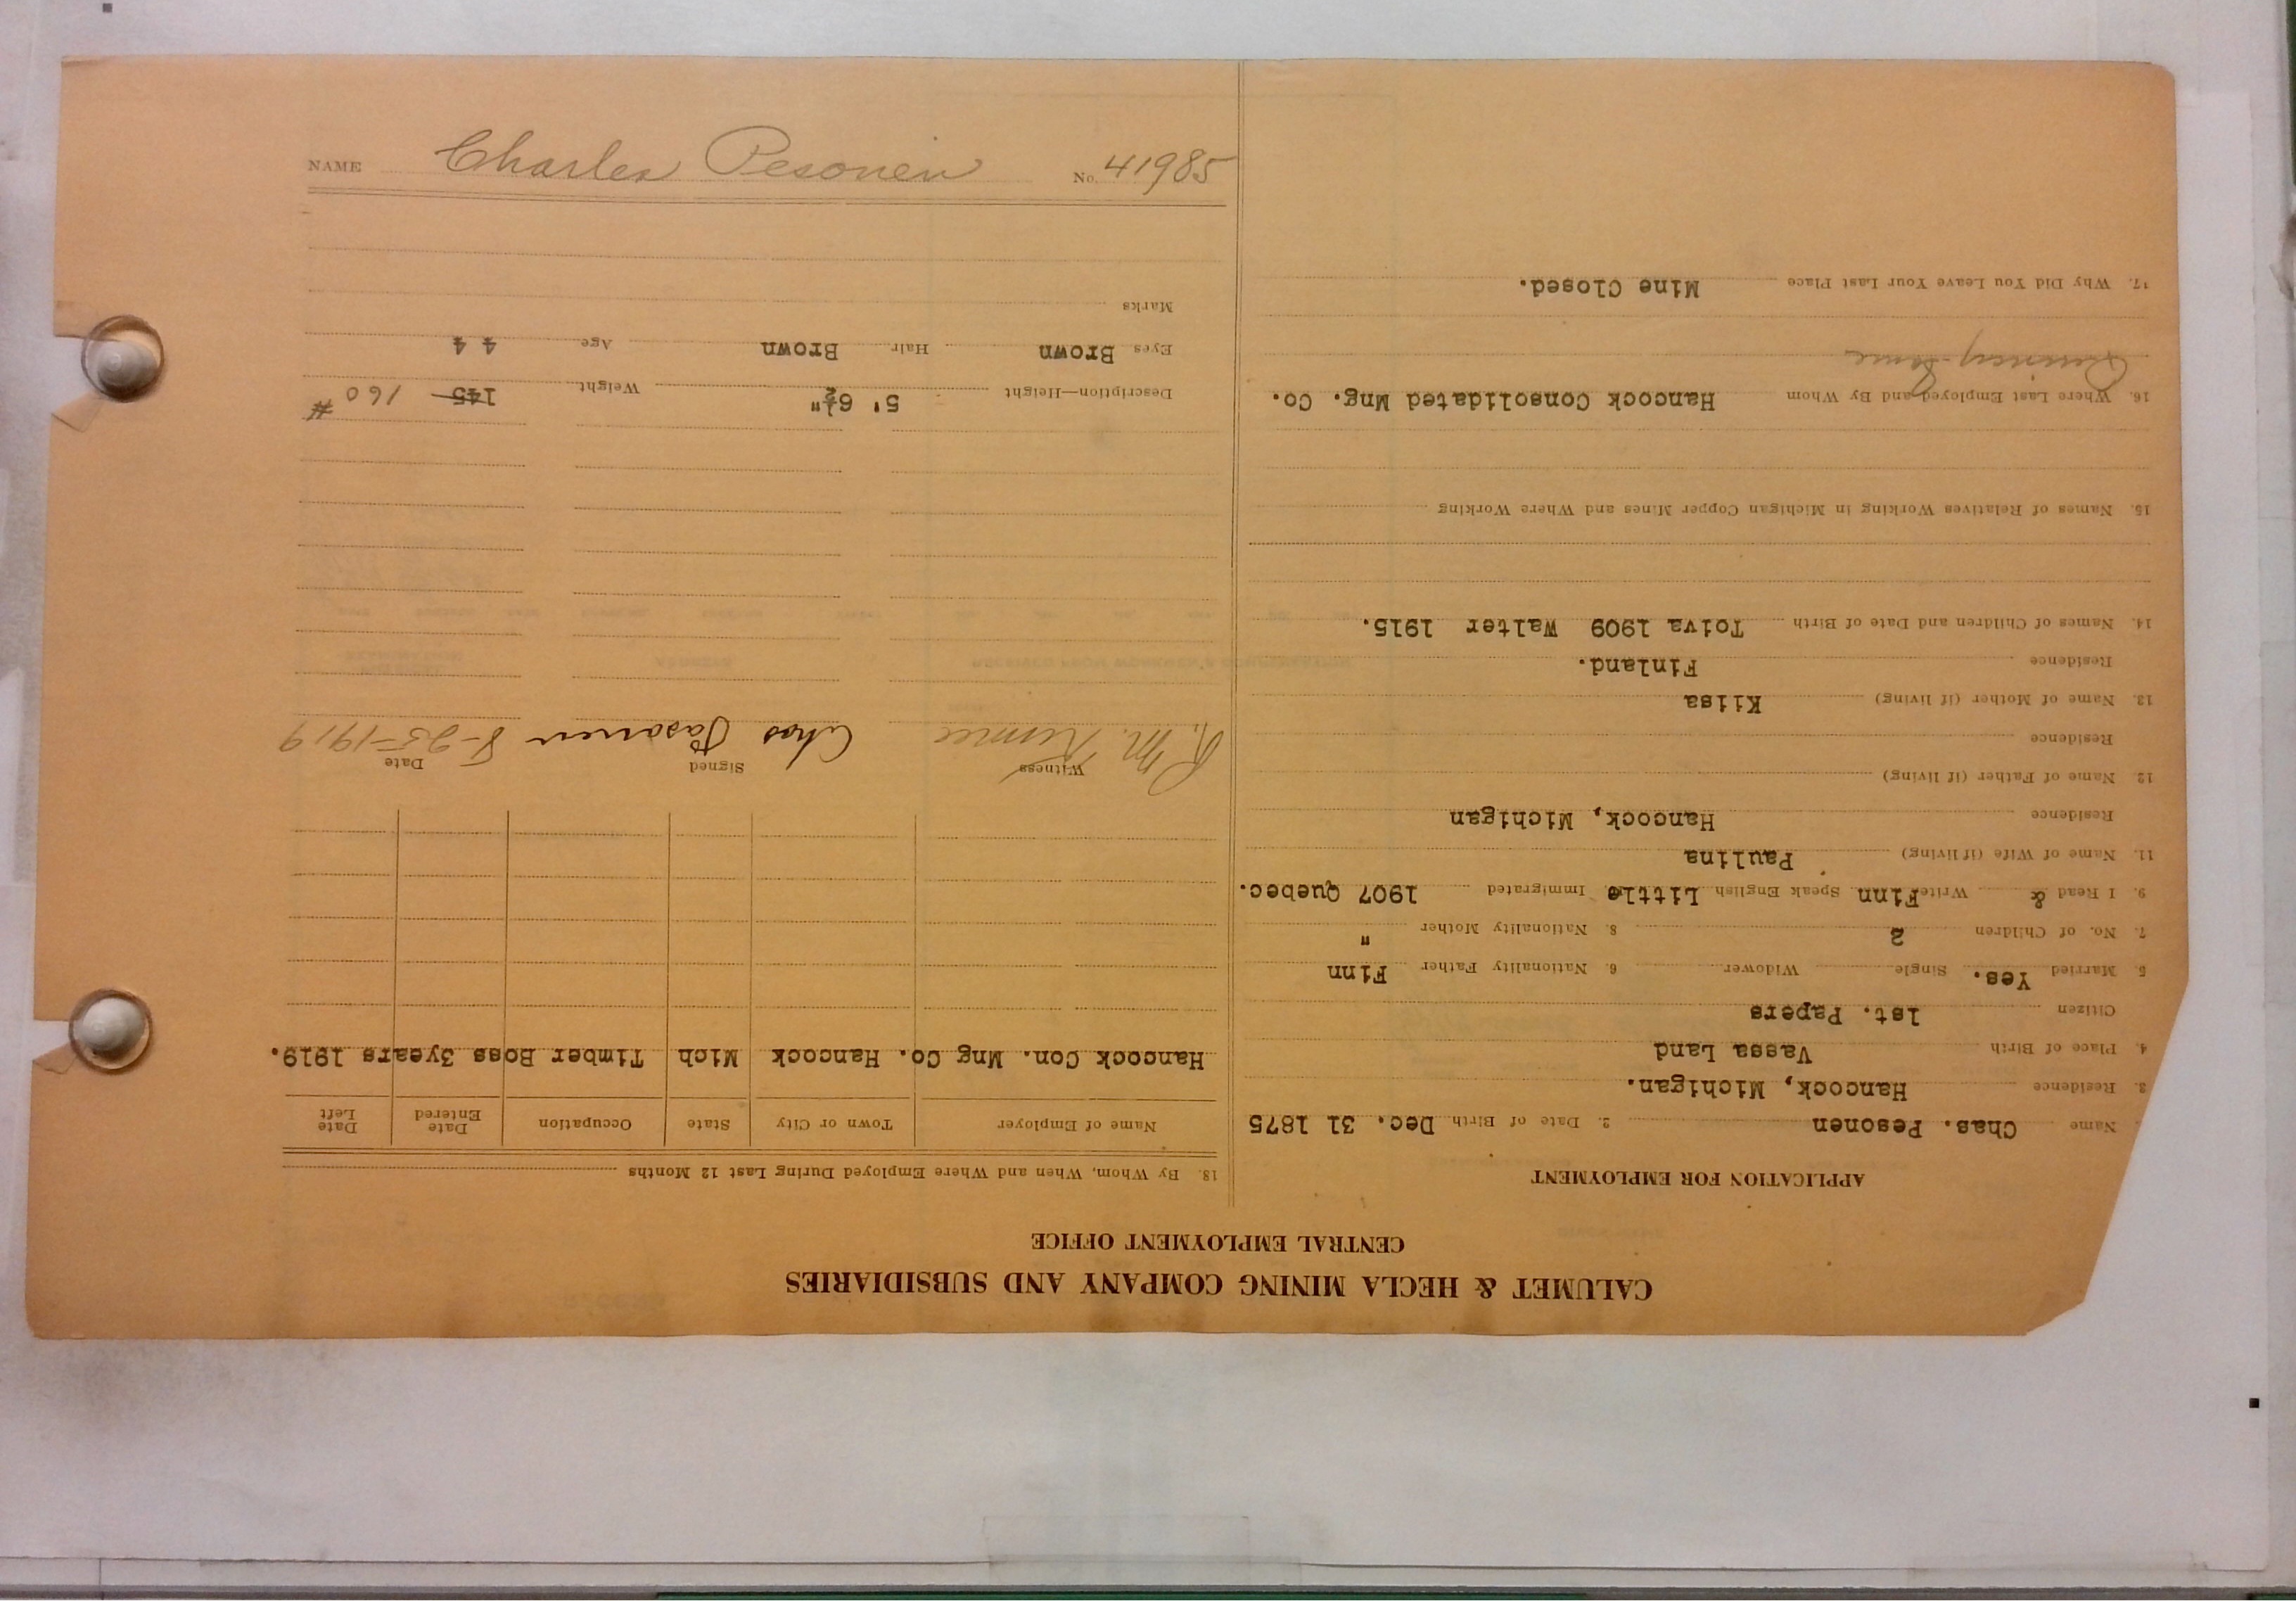 CALUMET & HECLA MINING COMPANY AND SUBSIDIARIES
CENTRAL EMPLOYMENT OFFICE
APPLICATION FOR EMPLOYMENT
Name Chas. Pesonen 2. Date of Birth Dec. 31 1875
3. Residence Hancock, Michigan.
4. Place of Birth Vassa Land
Citizen 1st. Papers
5. Married Yes. Single Widower 6. Nationality Father Finn
7. No. of Children 2 8. Nationality Mother "
9. I Read & Write Finn Speak English Little Immigrated 1907 Quebec.
11. Name of Wife (if living) Paulina
Residence Hancock, Michigan
12. Name of Father (if living)
Residence
13. Name of Mother (if living) Kiisa
Residence Finland.
14. Names of Children and Date of Birth Toiva 1909 Walter 1915.
15. Names of Relatives Working in Michigan Copper Mines and Where Working
16. Where Last Employed and By Whom Hancock Consolidated Mng. Co.
Quincy
17. Why Did You Leave Your Last Place Mine Closed.
18. By Whom, When and Where Employed During Last 12 Months
Name of Employer Town or City State Occupation Date Entered Date Left
Hancock Con. Mng Co. Hancock Mich Timber Boss 3years 1919.
Witness Signed Date
Chas Pasonen 8-25-1919
Description—Height 5' 6½" Weight 145 160 #
Eyes Brown Hair Brown Age 44
Marks
NAME Charles Pesonen No. 41985